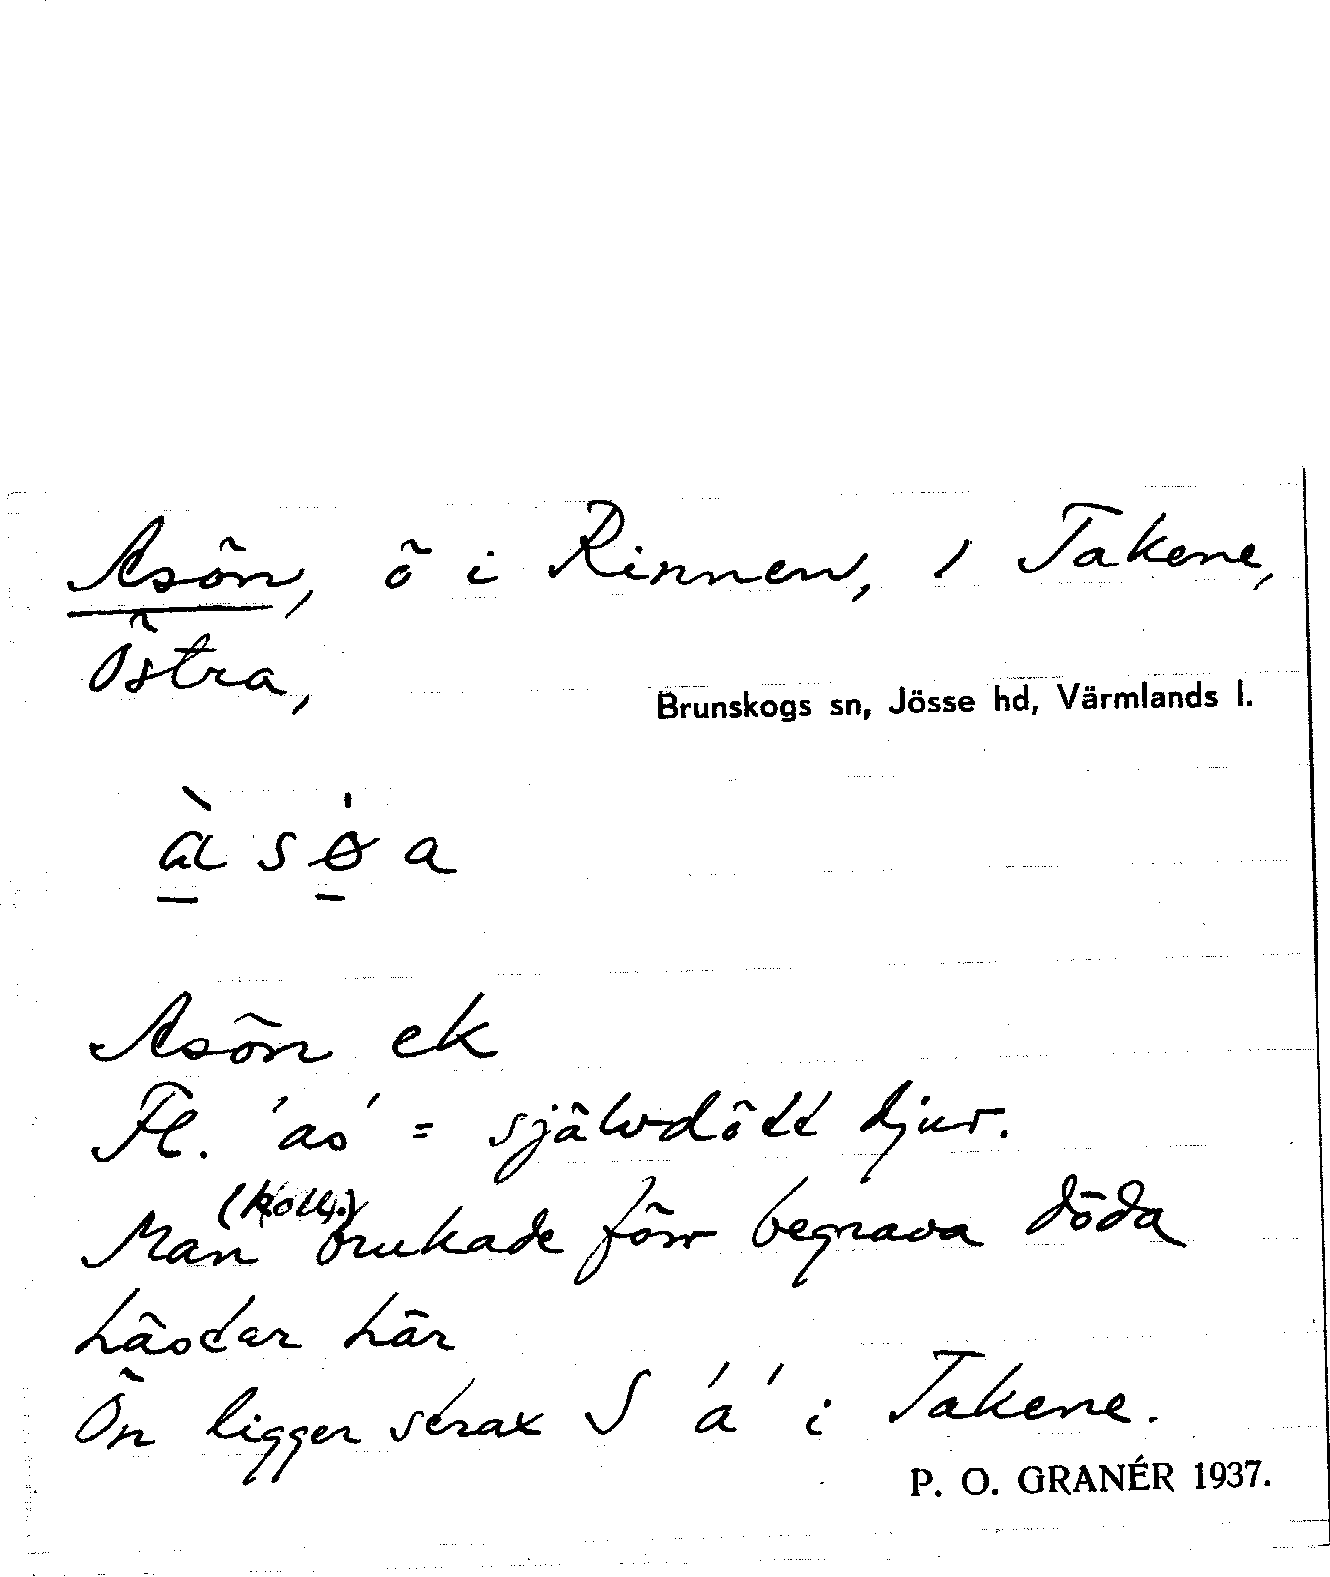 Asön, ö i Rinnen, 1 Takene,
Östra,
Brunskogs sn, Jösse hd, Värmlands l.
à s ø a
Asön ek
Fl. 'as' = självdött djur.
Man (koll.) brukade förr begrava döda
hästar här
Ön ligger strax S 'a' i Takene.
P. O. GRANÉR 1937.